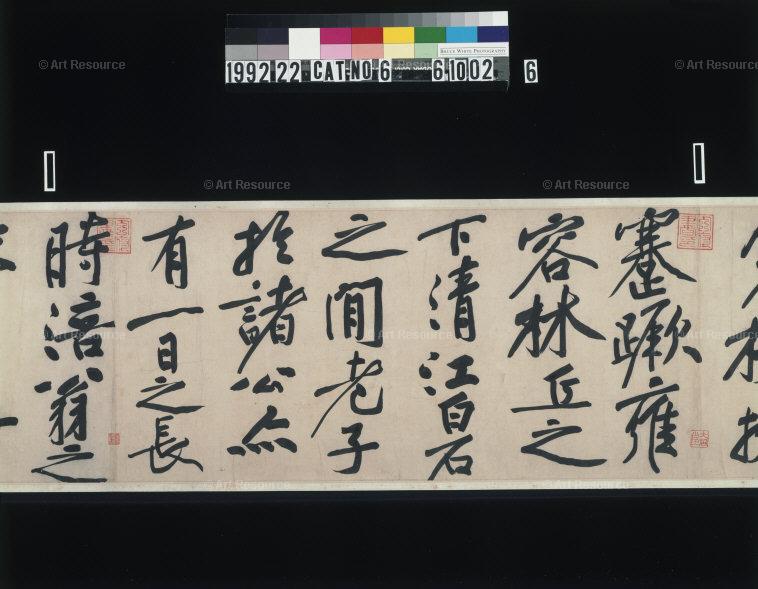 BRUCE WHITE PHOTOGRAPHY
1992.22 CAT·NO 6 6.1002 6
© Art Resource
© Art Resource
© Art Resource
© Art Resource
蹇蹶雍
容林丘之
下清江白石
之閒老子
於諸公亦
有一日之長
時涪翁之
© Art Resource
© Art Resource
© Art Resource
© Art Resource
© Art Resource